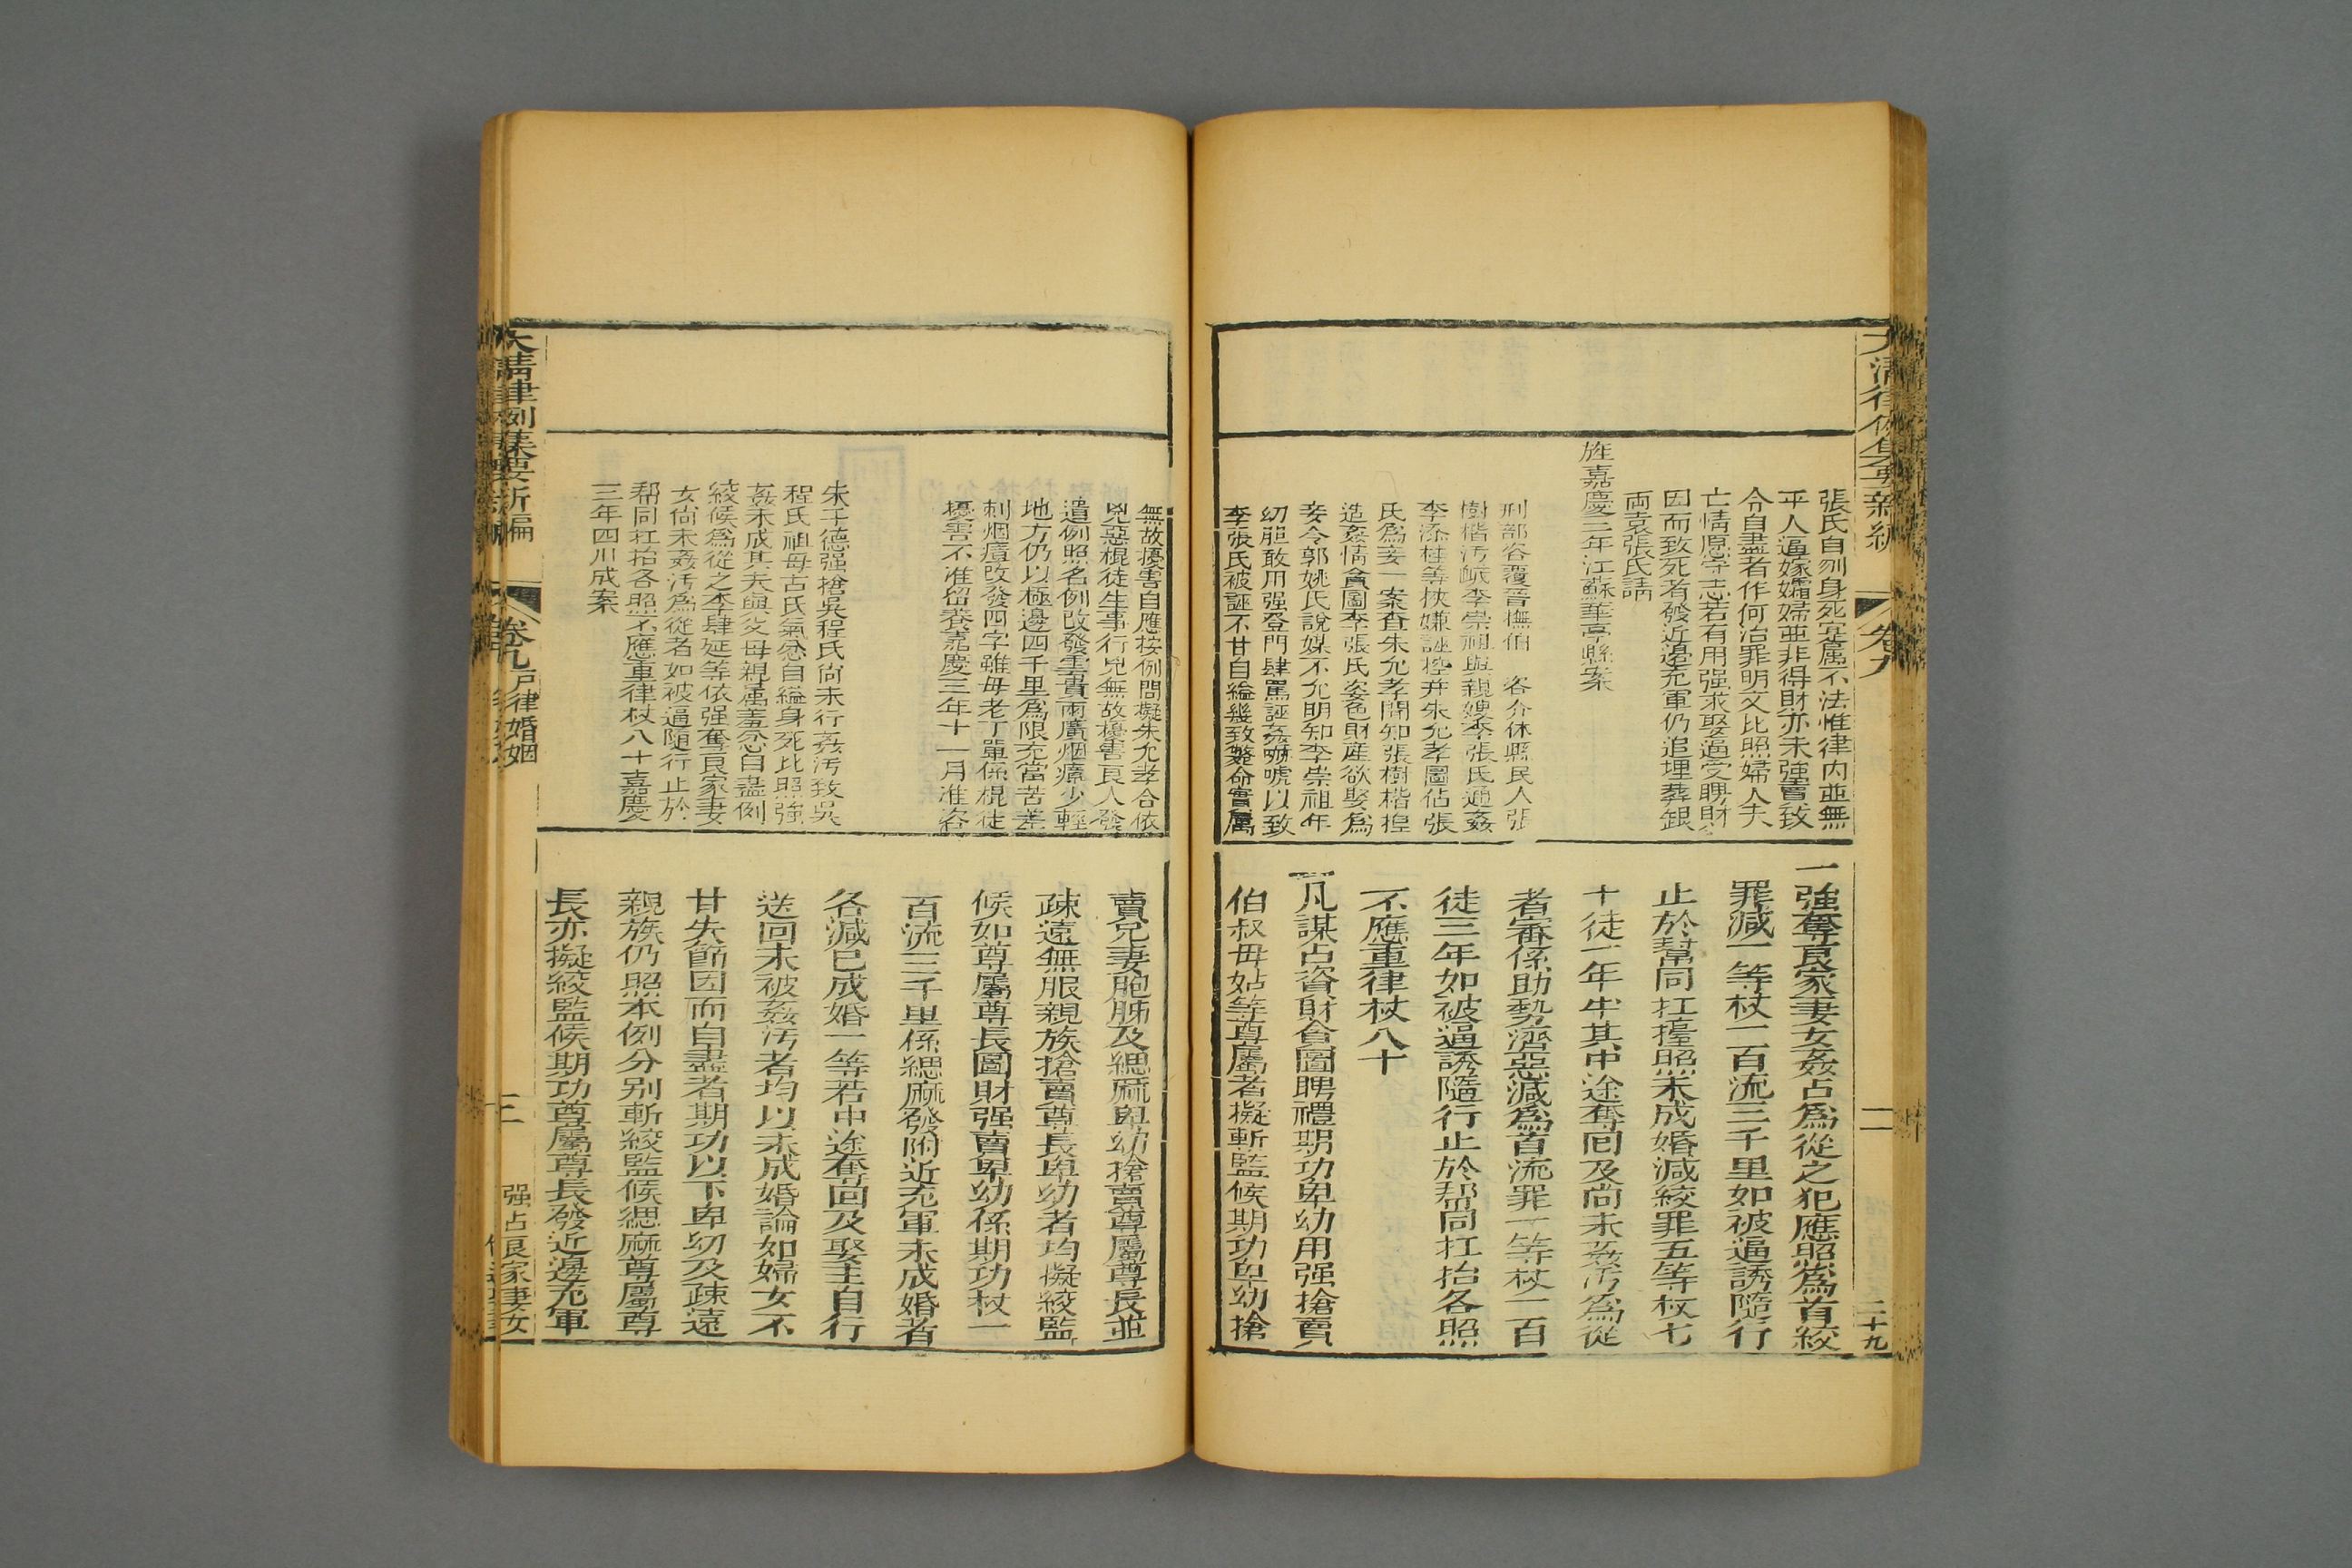 大清律例集要新編
卷九
二
二十九
張氏自刎身死寔屬不法惟律内並無
平人逼嫁孀婦並非得財亦未強賣致
令自盡者作何治罪明文比照婦人夫
亡情愿守志若有用强求娶逼受聘財
因而致死者發近邊充軍仍追埋葬銀
両袁張氏請
旌嘉慶二年江蘇華亭縣案
刑部咨覆晋撫伯 咨介休縣民人張
樹楷汚衊李崇祖與親嫂李張氏通姦
李添桂等挾嫌誣控并朱允孝圖佔張
氏爲妾一案查朱允孝聞知張樹楷捏
造姦情貪圖李張氏姿色財産欲娶爲
妾令郭姚氏說媒不允明知李崇祖年
幼胆敢用强登門肆罵誣姦嚇唬以致
李張氏被誣不甘自縊幾致斃命實屬
一強奪良家妻女姦占爲從之犯應照爲首絞
罪減一等杖一百流三千里如被逼誘隨行
止於幫同扛擡照未成婚減絞罪五等杖七
十徒一年半其中途奪回及尚未姦汚爲從
者審係助勢濟惡減爲首流罪一等杖一百
徒三年如被逼誘隨行止於帮同扛抬各照
不應重律杖八十
一凡謀占資財貪圖聘禮期功卑幼用强搶賣
伯叔母姑等尊屬者擬斬監候期功卑幼搶
無故擾害自應按例問擬朱允孝合依
兇惡棍徒生事行兇無故擾害良人發
遣例照名例改發雲貴兩廣烟瘴少輕
地方仍以極邊四千里爲限充當苦差
刺烟瘴改發四字雖毋老丁單係棍徒
擾害不准留養嘉慶三年十一月准咨
朱于德强搶吳程氏尚未行姦汚致吳
程氏祖母古氏氣忿自縊身死比照強
姦未成其夫與父母親属羞忿自盡例
絞候爲從之李肆延等依强奪良家妻
女尚未姦汚爲從者如被逼隨行止於
帮同扛抬各照不應重律杖八十嘉慶
三年四川成案
賣兄妻胞姊及緦麻卑幼搶賣尊屬尊長並
疎遠無服親族搶賣尊長卑幼者均擬絞監
候如尊屬尊長圖財强賣卑幼係期功杖一
百流三千里係緦麻發附近充軍未成婚者
各減已成婚一等若中途奪回及娶主自行
送回未被姦汚者均以未成婚論如婦女不
甘失節因而自盡者期功以下卑幼及疎遠
親族仍照本例分别斬絞監候緦麻尊屬尊
長亦擬絞監候期功尊屬尊長發近邊充軍
大清律例集要新編
卷九戸律婚姻
三
强占良家妻女